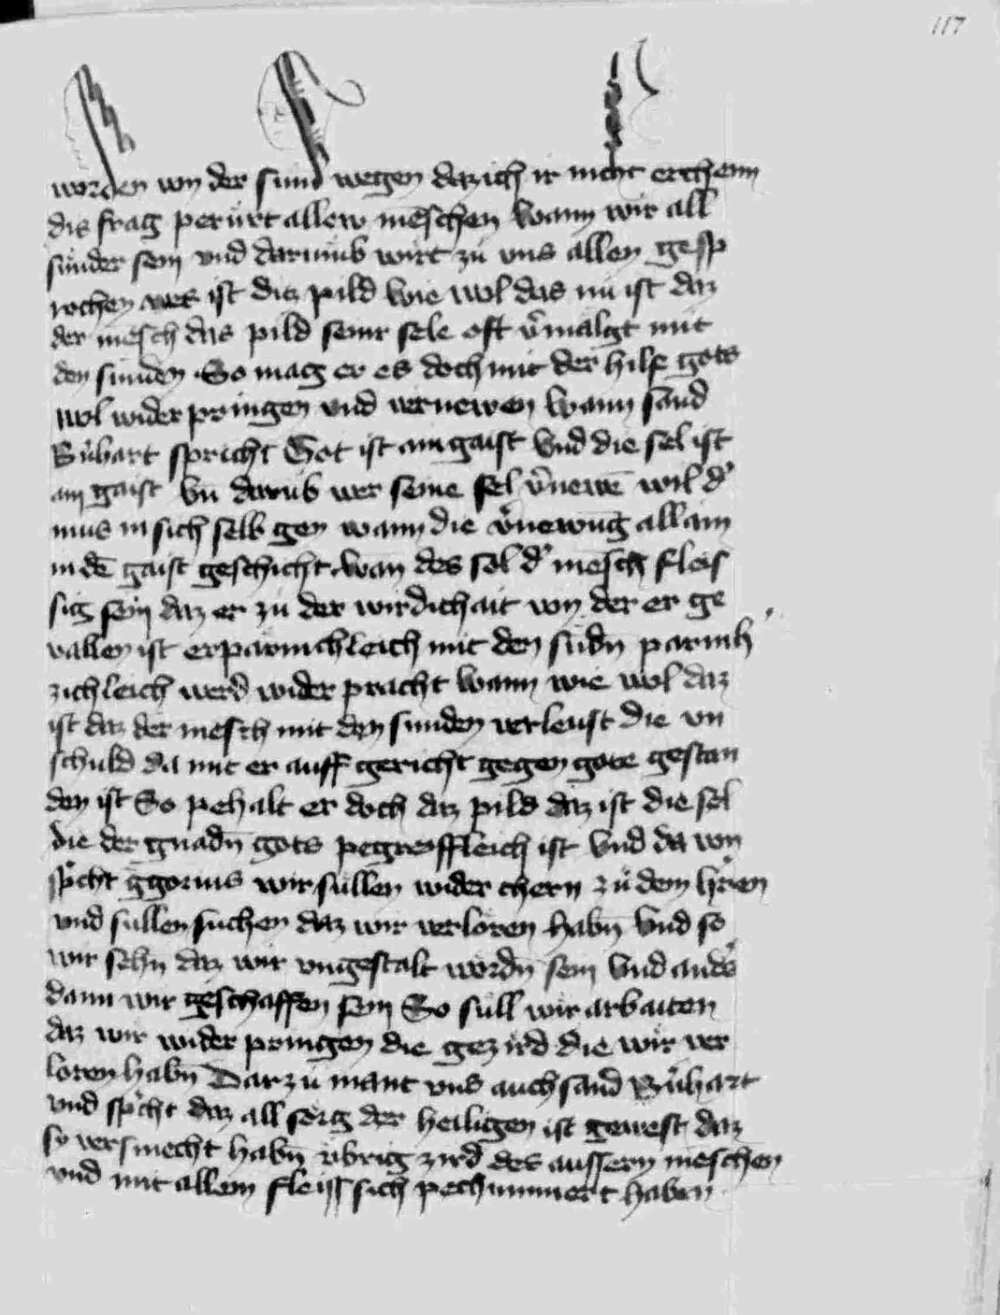 117
worden von der sund wegen daz ich ir nicht erchenn
dis frag perürt allew meschen wann wir all
sünder sein vnd darumb wirt zu vns allen gesp
rochen wes ist diz pild wie wol das nu ist daz
der mesch das pild seinr sele oft v̄mailgt mit
den sunden So mag er es doch mit der hilf gots
wol wider pringen vnd vernewen wann sand
B̄nhart spricht Got ist ain gaist vnd die sel ist
ain gaist vn̄ darūb wer seine sel v̄newē wil d̕
mus in sich selb gen wann die v̄newūg allain
in dē gaist geschicht wan des sol d̕ mesch fleis
sig sein daz er zu der wirdichait von der er ge
vallen ist erparmchleich mit den sūdn parmh
zichleich werd wider pracht wann wie wol daz
ist daz der mesch mit den sunden verleust die vn
schuld da mit er auff gericht gegen gote gestan
den ist So pehalt er doch daz pild daz ist die sel
die der gnadn̄ gots pegreiffleich ist vnd da von
sp̄cht ḡgorius wir sullen wider chern zu dem h̄ren
vnd sullen suchen daz wir verloren habn̄ vnd so
wir sehn daz wir vngestalt wordn̄ sein vnd and̕s
dann wir geschaffen sein So sull wir arbaiten
daz wir wider pringen die gezird die wir ver
loren habn̄ Dar zu mant vns auch sand B̄nhart
vnd sp̄cht daz all sorg der heiligen ist gewest daz
sy versmecht habn̄ übrig zird des aussern meschen
vnd mit allem fleiss sich pechummert haben